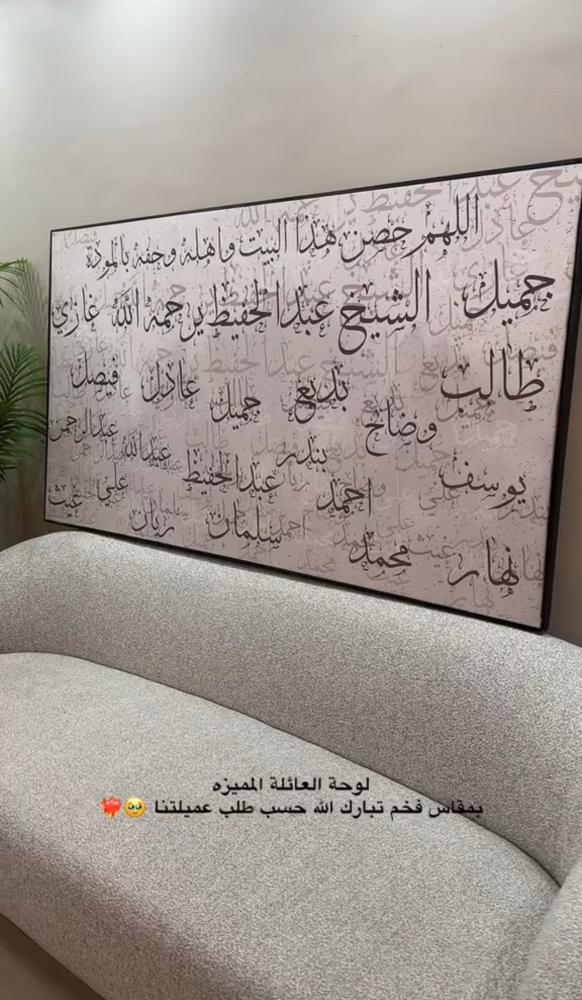 اللهم حصن هذا البيت واهله وحفه بالمودة
جميل الشيخ عبدالحفيظ يرحمه الله غازي
طالب بديع جميل عادل فيصل
وضاح
يوسف بندر عبدالله عبدالرحمن
احمد عبدالحفيظ علي غيث
نهار محمد سلمان ريان
لوحة العائلة المميزه
بمقاس فخم تبارك الله حسب طلب عميلتنا 🥹❤️‍🔥